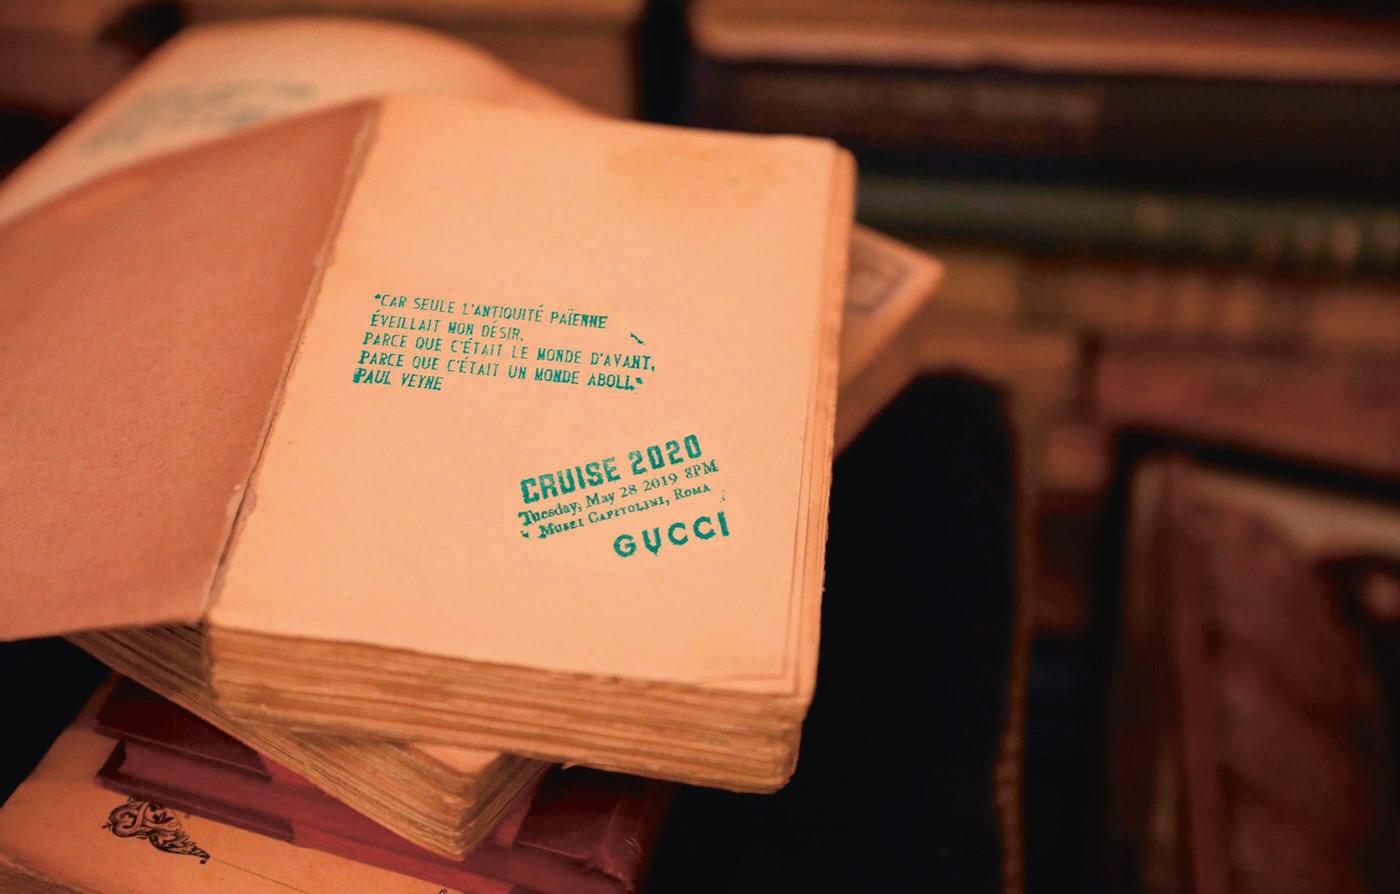 "CAR SEULE L'ANTIQUITÉ PAÏENNE
ÉVEILLAIT MON DÉSIR,
PARCE QUE C'ÉTAIT LE MONDE D'AVANT,
PARCE QUE C'ÉTAIT UN MONDE ABOLI."
PAUL VEYNE
CRUISE 2020
Tuesday, May 28 2019 8PM
Musei Capitolini, Roma
GUCCI